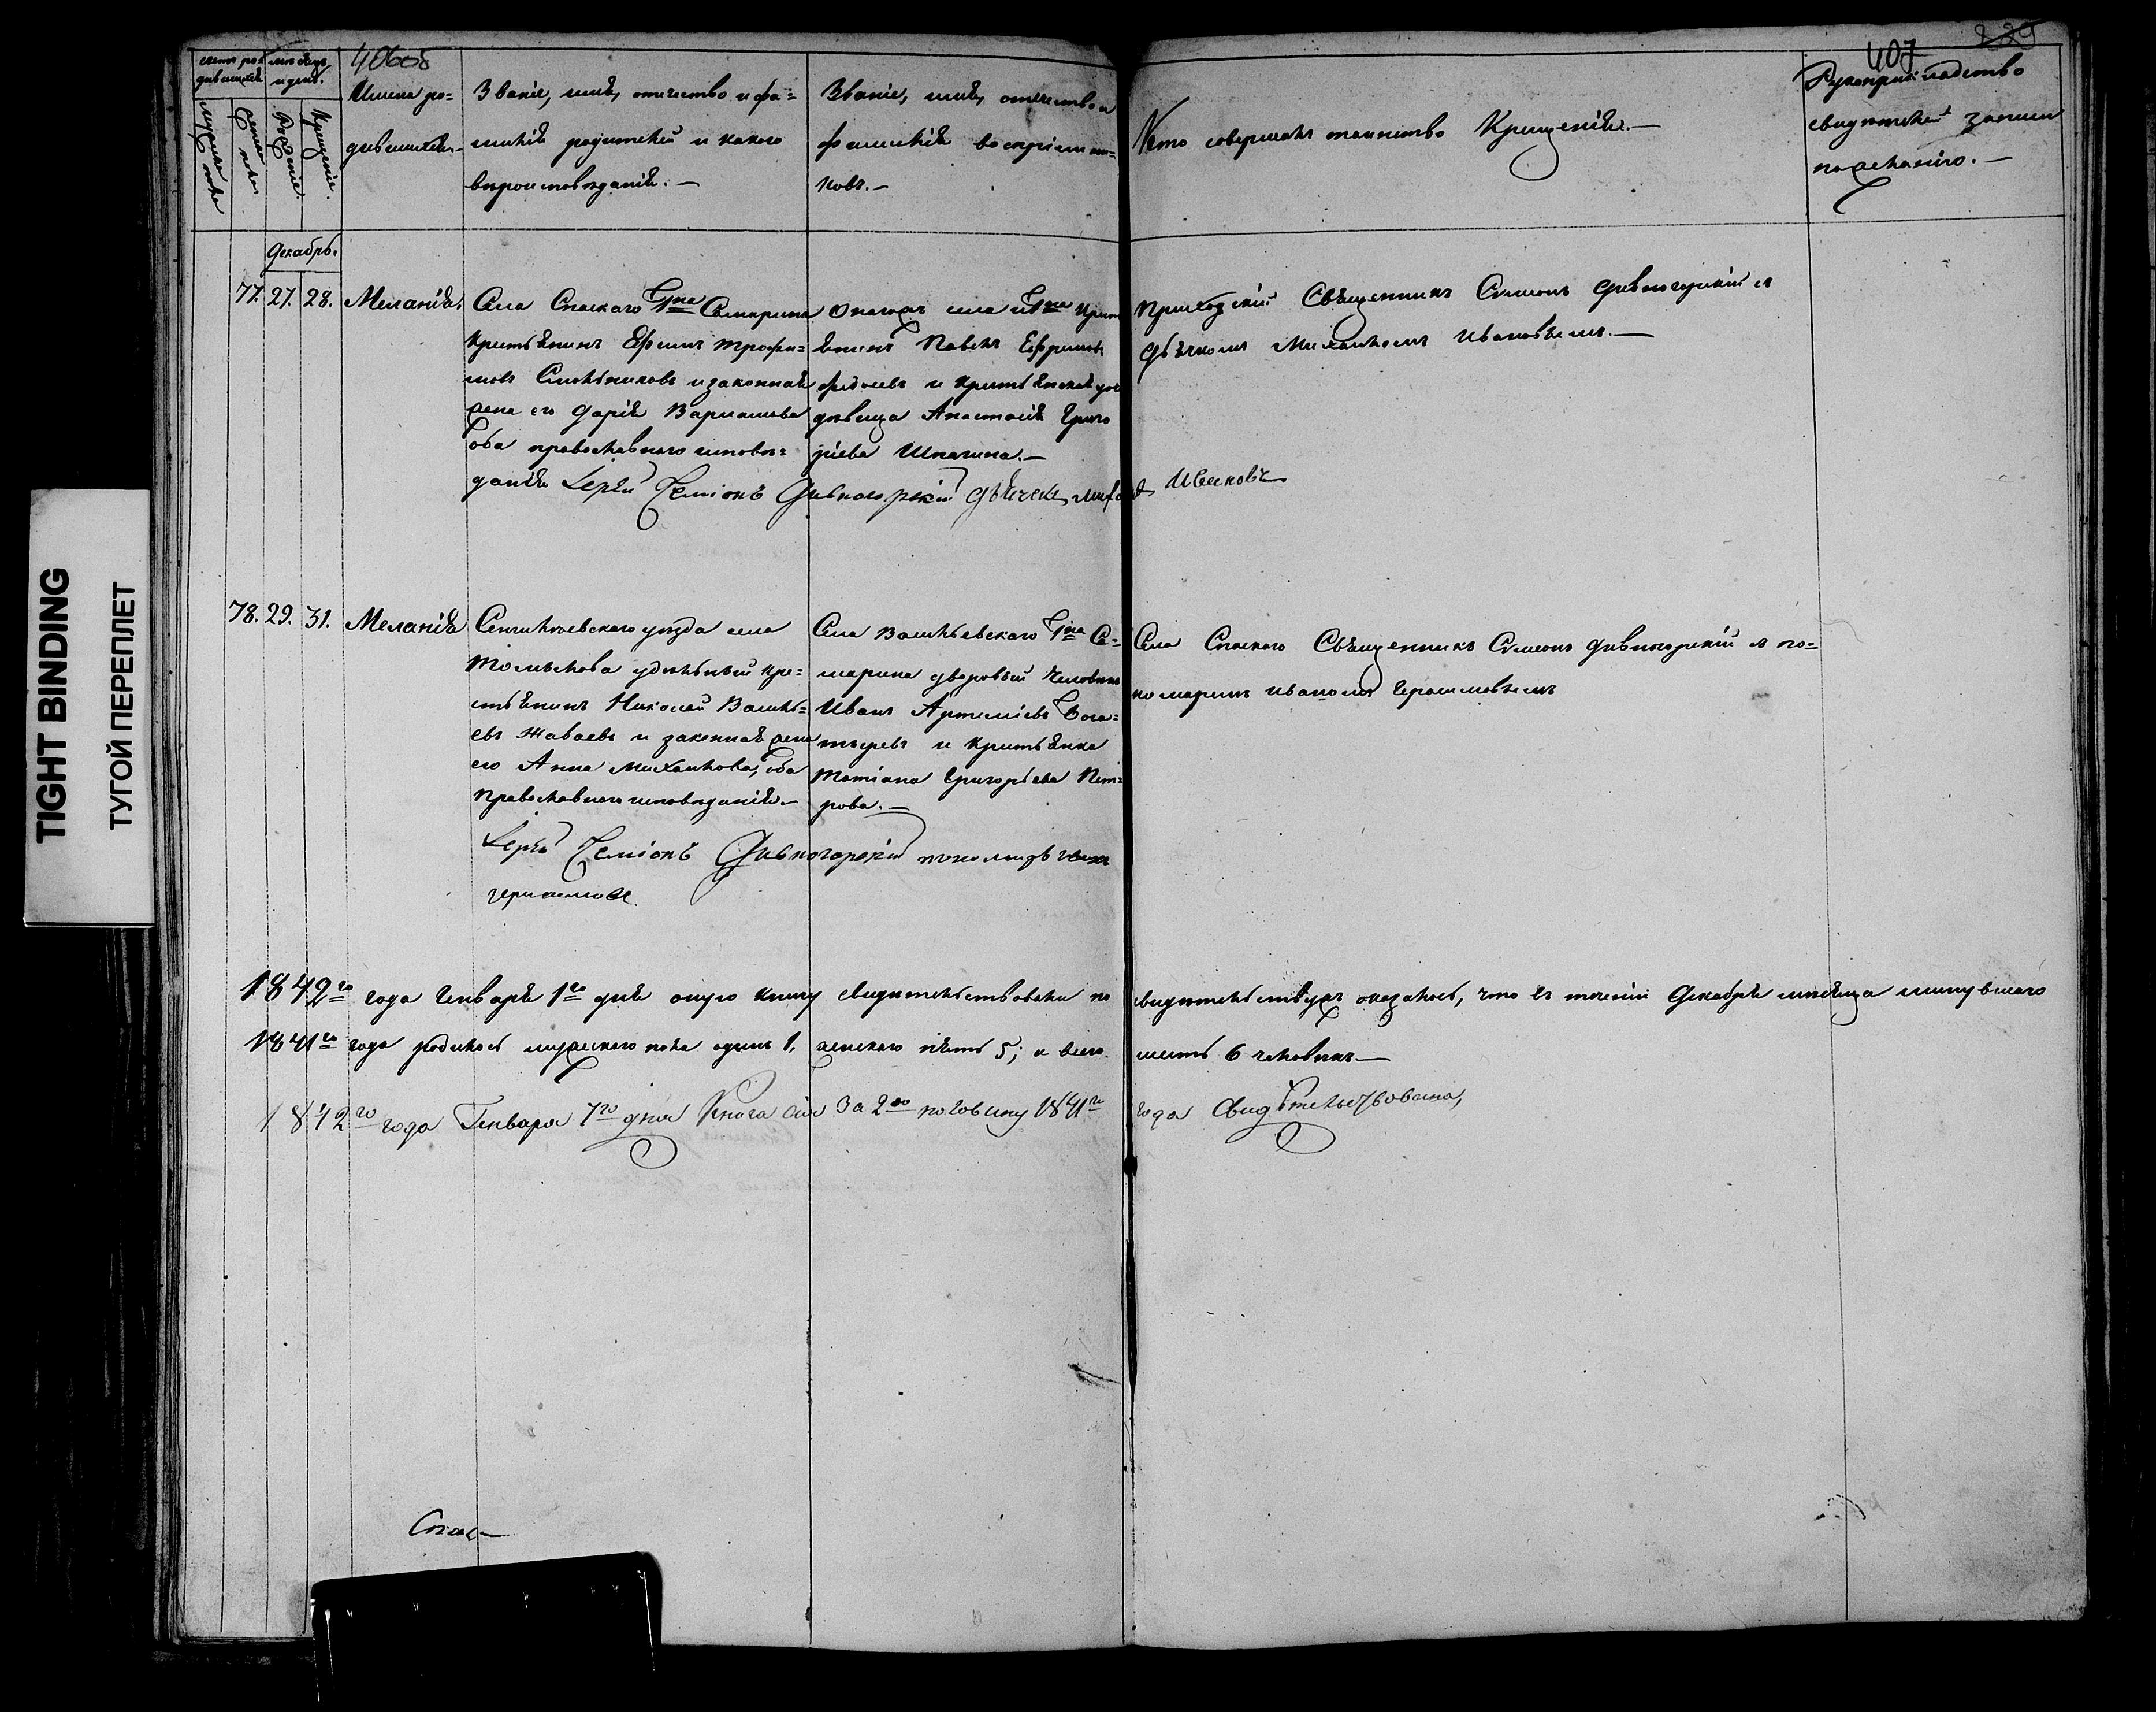 TIGHT BINDING
ТУГОЙ ПЕРЕПЛЕТ
407
Имена ро=
дившихся.
Званіе, имя, отечество и фа=
милія родителей и какого
вѣроисповѣданія.—
Званіе, имя, отечество и
фамилія воспріемни=
ковъ.—
Кто совершалъ таинство Крещенія.—
Рукоприкладство
свидѣтелей записи
по желанію.—
мужеска пола
женска пола
Рожденіе.
Крещеніе.
Декабрь.
77. 27. 28. Меланія.
Села Спаскаго Гна Самарина
Крестьянинъ Ефимъ Трофи=
мовъ Смольниковъ и законная
жена его Дарія Варламова
оба православнаго исповѣ=
данія
Онагожъ села и Гна Крест
янинъ Павелъ Ефремовъ
и Крестьянская до
дѣвица Анастасія Григо
ріева Шпагина.—
Приходскій Священникъ Симеонъ Дивногорскій съ
дьячкомъ Михаиломъ Ивановымъ.—
Іерей Семіонъ Дивногорскій дьячекъ Ивановъ
78. 29. 31. Меланія
Сенгилѣевскаго уѣзда села
удѣльный кре=
стьянинъ Николай Василь=
евъ Жаваевъ и законная жена
его Анна Михаилова, оба
православнаго исповѣданія.—
Села Васильевскаго Гна Са=
марина дворовый человѣкъ
Иванъ Артеміевъ Бога=
тыревъ и крестьянка
Татіана Григорьева Пет=
рова.—
Села Спаскаго Священникъ Симеонъ Дивногорскій съ по=
номаремъ Иваномъ Герасимовымъ
Іерей Семіонъ Дивногорскій пономарь Иванъ
Герасимовъ.
1842го года Генваря 1го дня оную книгу свидѣтельствовали по свидѣтельству оказалось, что въ теченіи Декабря мѣсяца минувшаго
1841го года родилось мужескаго пола одинъ 1, женскаго пять 5; и всего шесть 6 человѣкъ—
1842го года Генваря 7го дня Книга сія за 2ю половину 1841го года Свидѣтельствована,